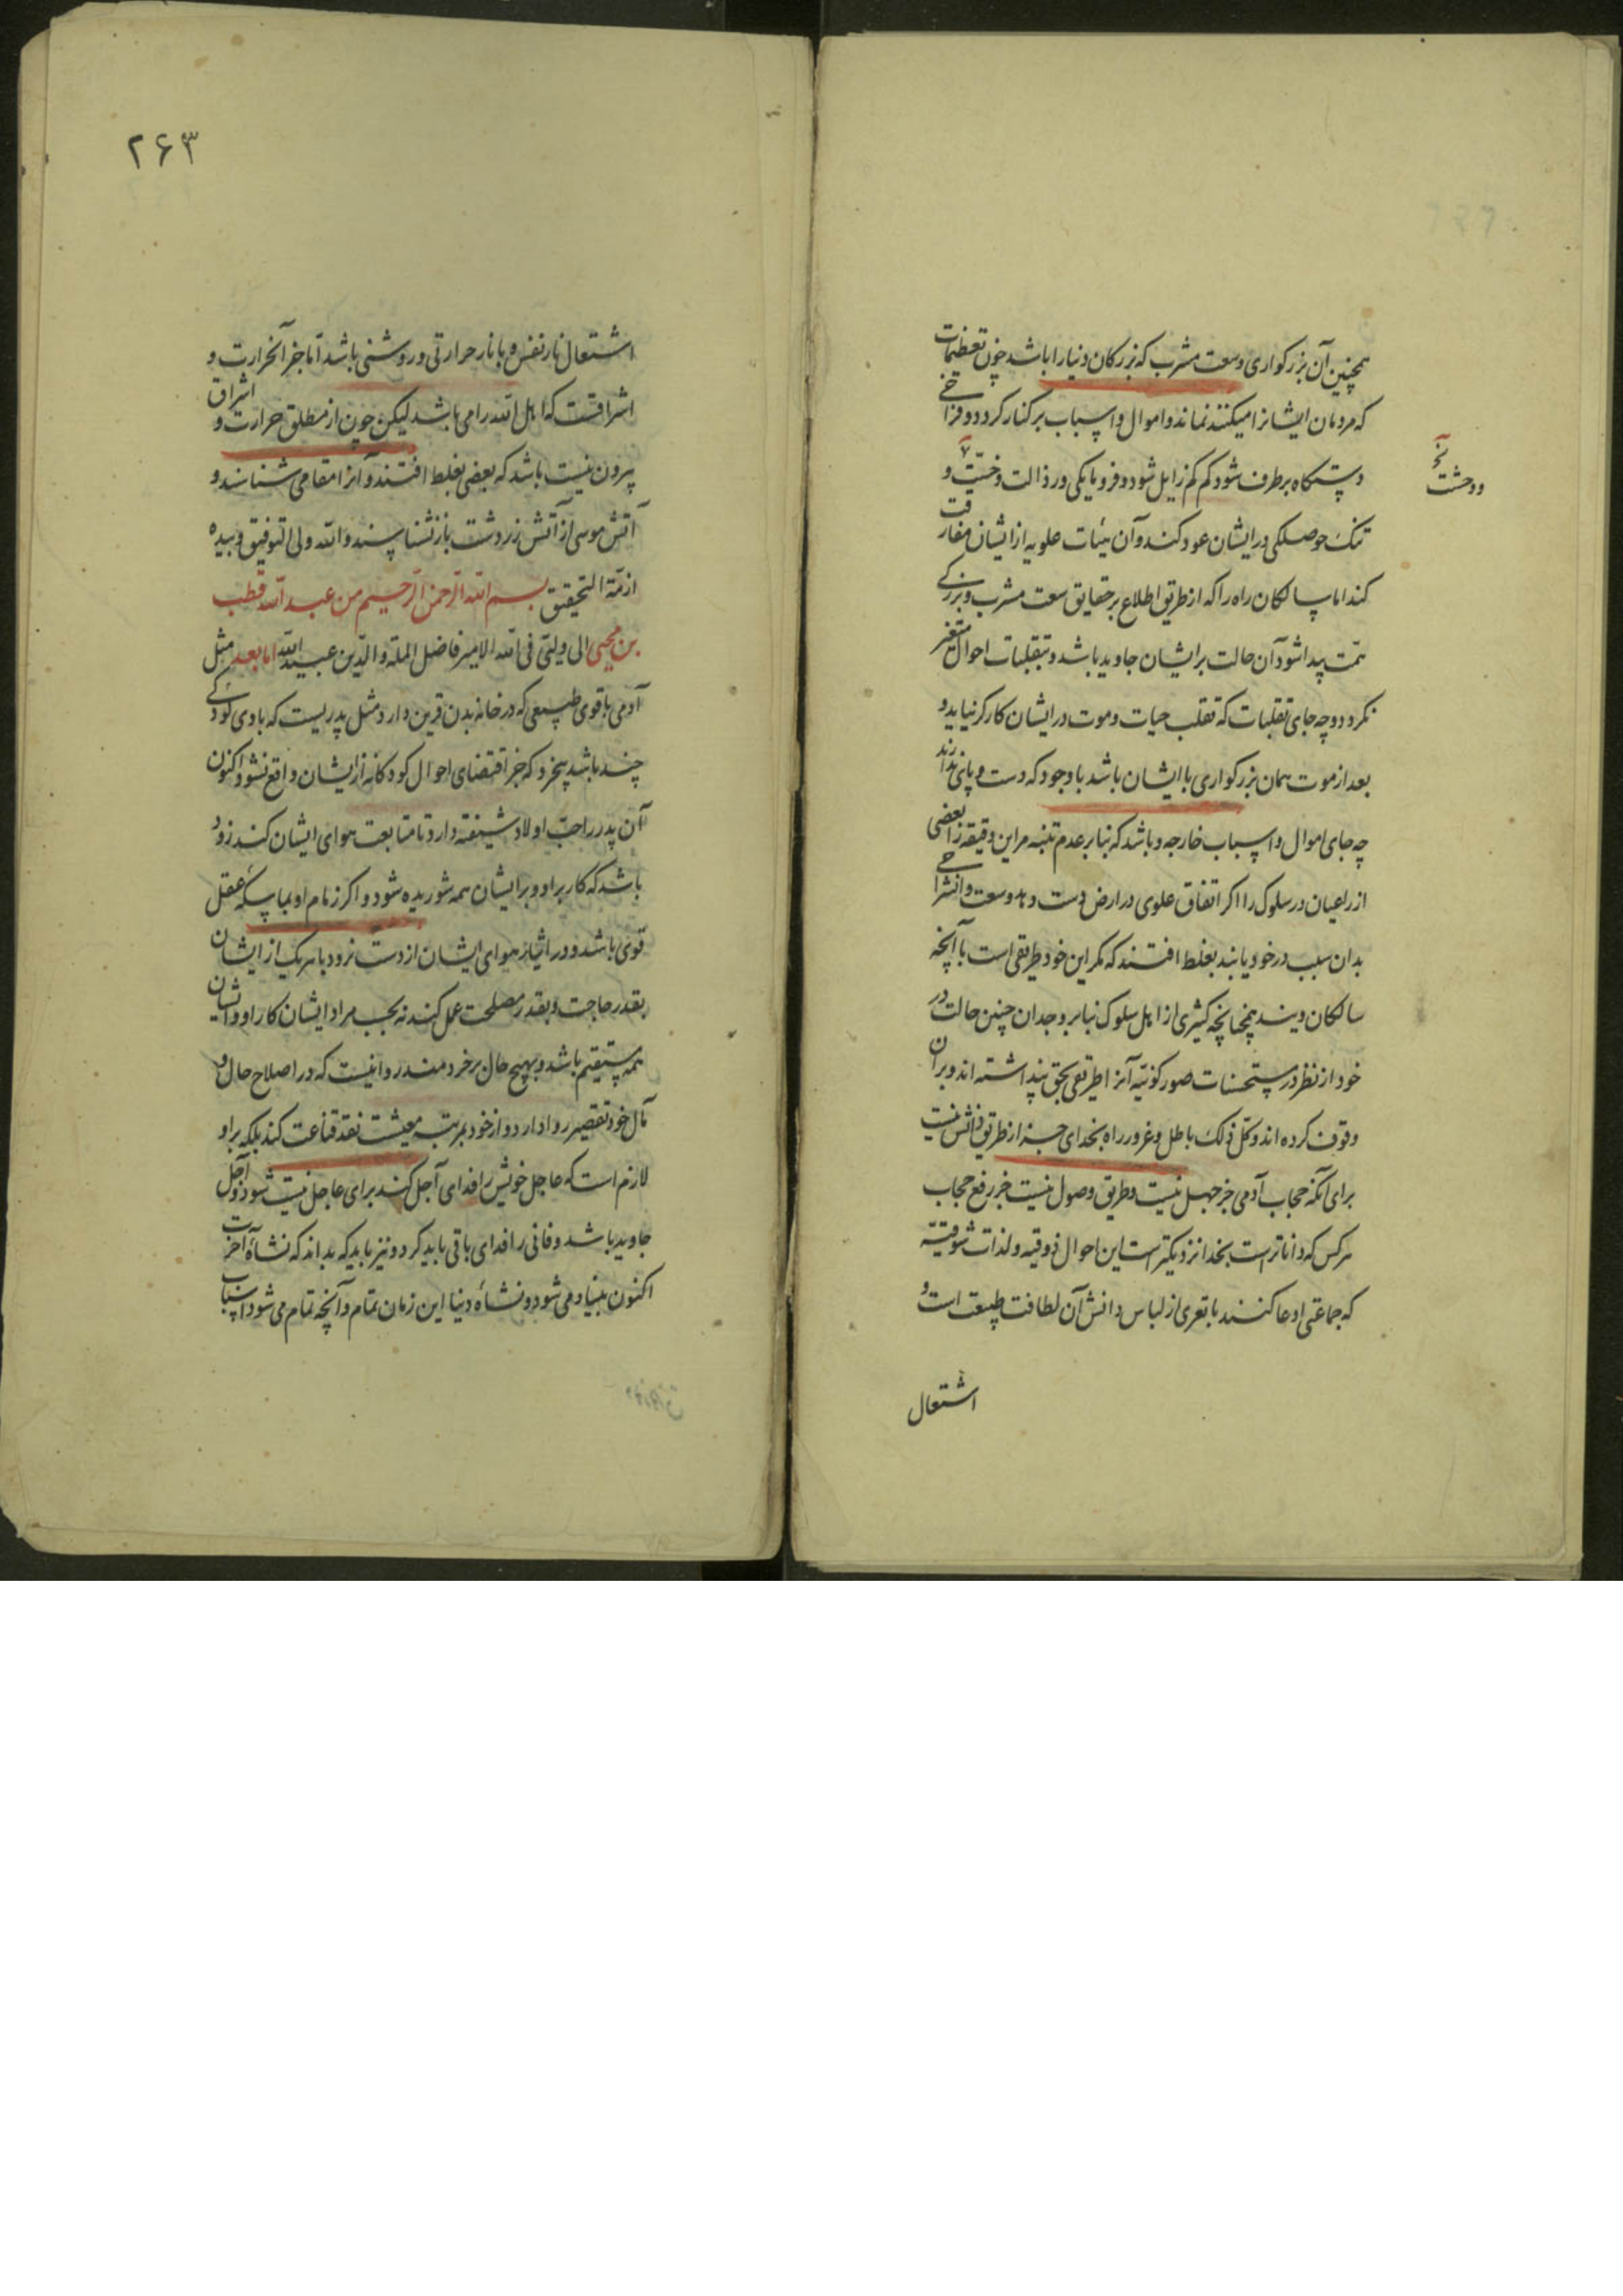 همچنین آن بزرکواری وسعت مشرب که بزرکان دنیا را باشد چون تعظیمات
که مردمان ایشانرا میکنند نماند و اموال و اسباب بر کنار کردد و فراخی
دستکاه برطرف شود کم کم زایل شود و فرومایکی و رذالت و خسّیت و
و وحشت
تنک حوصلکی در ایشان عود کند و آن هیئات علویه از ایشان مفارقت
کند اما سالکان راه را که از طریق اطلاع بر حقایق سعت مشرب و بزرکی
همّت پیدا شود آن حالت بر ایشان جاوید باشد و بتقلبات احوال متغیر
نکردد و چه جای تقلبات که تقلب حیات و موت در ایشان کارکر نیاید و
بعد از موت همان بزرکواری با ایشان باشد با وجود که دست و پای ندارند
چه جای اموال و اسباب خارجه و باشد که بنابر عدم تنبه مر این دقیقه را بعضی
از راعیان در سلوک را اکر اتفاق علوی در ارض دست دهد و سعت و انشراحی
بدان سبب در خود یابند بغلط افتند که مکر این خود طریقی است با آنچه
سالکان دیند همچنانچه کثیری از اهل سلوک بنابر وجدان چنین حالت در
خود از نظر در مستحسنات صور کونیّه آنرا طریقی بحق پنداشته اند و بر آن
وقوف کرده اند و کل ذلک باطل و غرور راه بخدای جز از طریق دانش نیست
برای آنکه حجاب آدمی جز جهل نیست و طریق وصول نیست جز رفع حجاب
هر کس که داناتر است بخدا نزدیکتر است این احوال ذوقیه و لذات شوقیّه
که جماعتی ادعا کنند با تعری از لباس دانش آن لطافت طبیعت است و
اشتعال
۲۶۳
اشتعال نار نفس و با نار حرارتی و روشنی باشد اما جز آنحرارت و
اشراقست که اهل الله را می باشد لیکن چون از مطلق حرارت و اشراق
بیرون نیست باشد که بعضی بغلط افتند و آنرا مقامی شناسند و
آتش موسی از آتش زردشت باز نشناسند و الله ولی التوفیق و بیده
ازمّة التحقیق بسم الله الرّحمن الرّحیم من عبد الله قطب
بن محیی الی ولیّی فی الله الامیر فاضل الملة و الدّین عبید الله اما بعد مثل
آدمی با قوی طبیعی که در خانه بدن قرین دارد مثل پدریست که با وی کودکی
چند باشد بیخرد که جز اقتضای احوال کودکانه از ایشان واقع نشود اکنون
آن پدر را حبّ اولاد شیفته دارد تا متابعت هوای ایشان کند زود
باشد که کار بر او و بر ایشان همه شوریده شود و اکر زمام او بماسکه عقل
قوی باشد و در ایثار هوای ایشان از دست نرود با هر یک از ایشان
بقدر حاجت و بقدر مصلحت عمل کند نه بحسب مراد ایشان کار او و ایشان
همه مستقیم باشد و بهیچ حال بر خردمند روا نیست که در اصلاح حال و
مآل خود تقصیر روا دارد و از خود بمرتبه معیشت نقد قناعت کند بلکه بر او
لازم است که عاجل خویش را فدای آجل کند برای عاجل نیست شود و آجل
جاوید باشد و فانی را فدای باقی باید کرد و نیز باید که بداند که نشاۀ آخرت
اکنون بنیاد می شود و نشاۀ دنیا این زمان تمام و آنچه تمام می شود اسباب